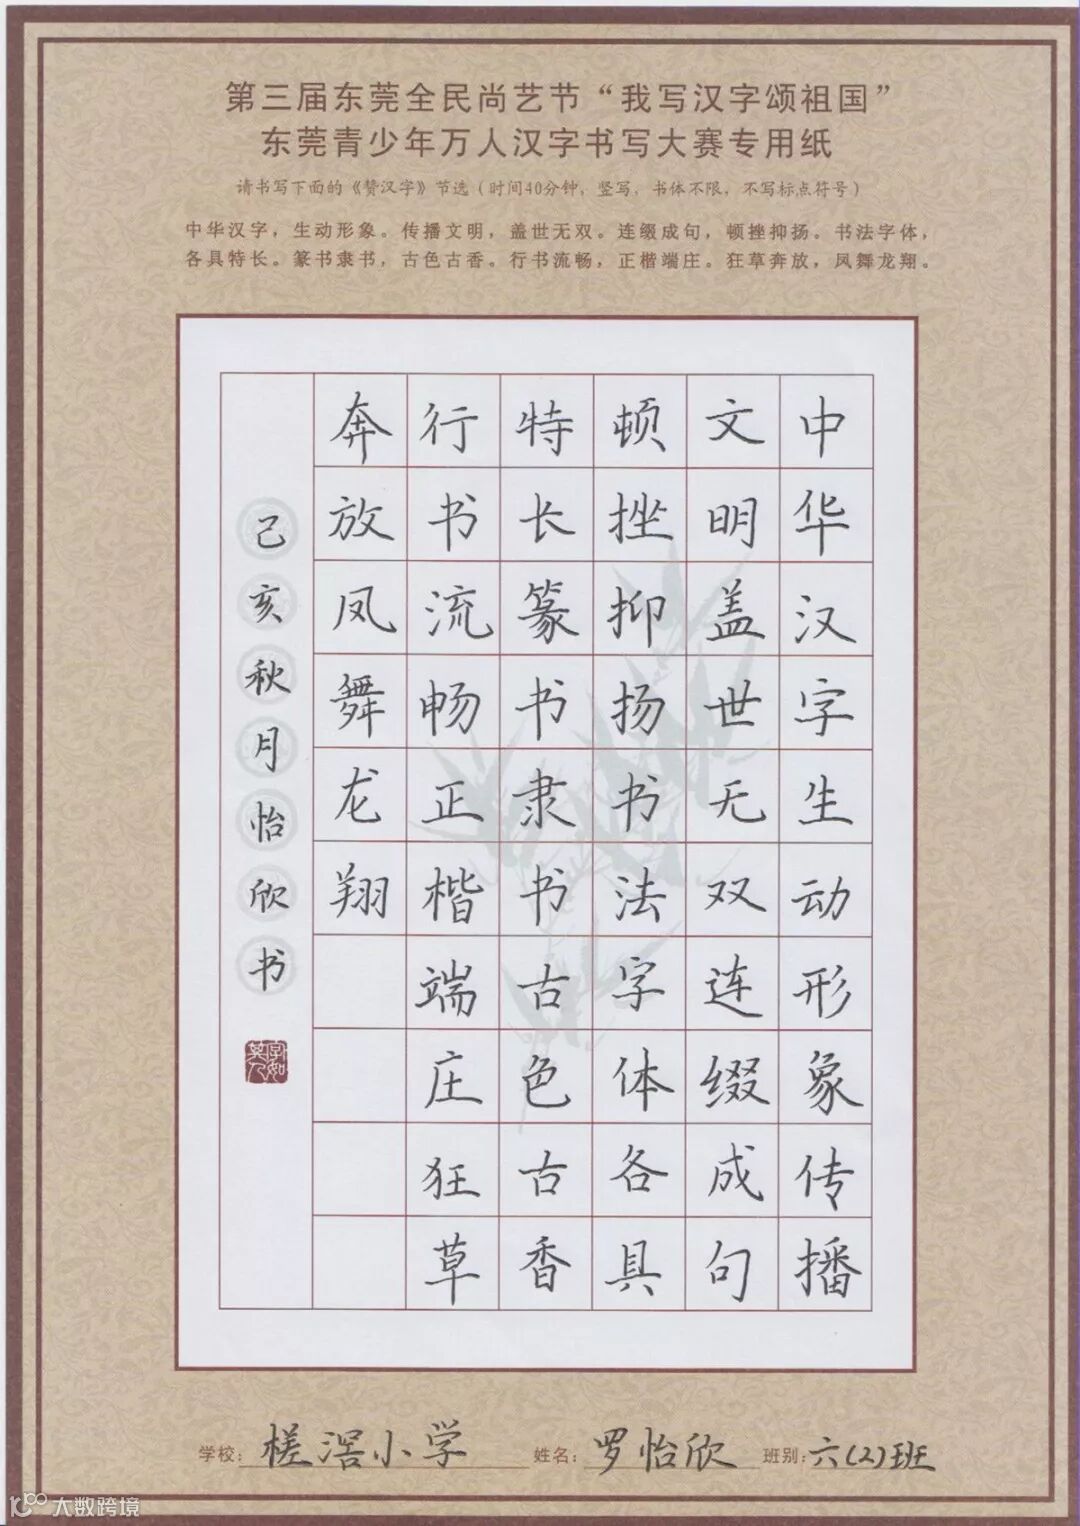 第三届东莞全民尚艺节“我写汉字颂祖国”
东莞青少年万人汉字书写大赛专用纸
请书写下面的《赞汉字》节选(时间40分钟，竖写，书体不限，不写标点符号)
中华汉字，生动形象。传播文明，盖世无双。连缀成句，顿挫抑扬。书法字体，
各具特长。篆书隶书，古色古香。行书流畅，正楷端庄。狂草奔放，凤舞龙翔。
中华汉字生动形象传播
文明盖世无双连缀成句
顿挫抑扬书法字体各具
特长篆书隶书古色古香
行书流畅正楷端庄狂草
奔放凤舞龙翔
己亥秋月怡欣书
字如其人
学校:槎滘小学 姓名:罗怡欣 班别:六(2)班
大数跨境